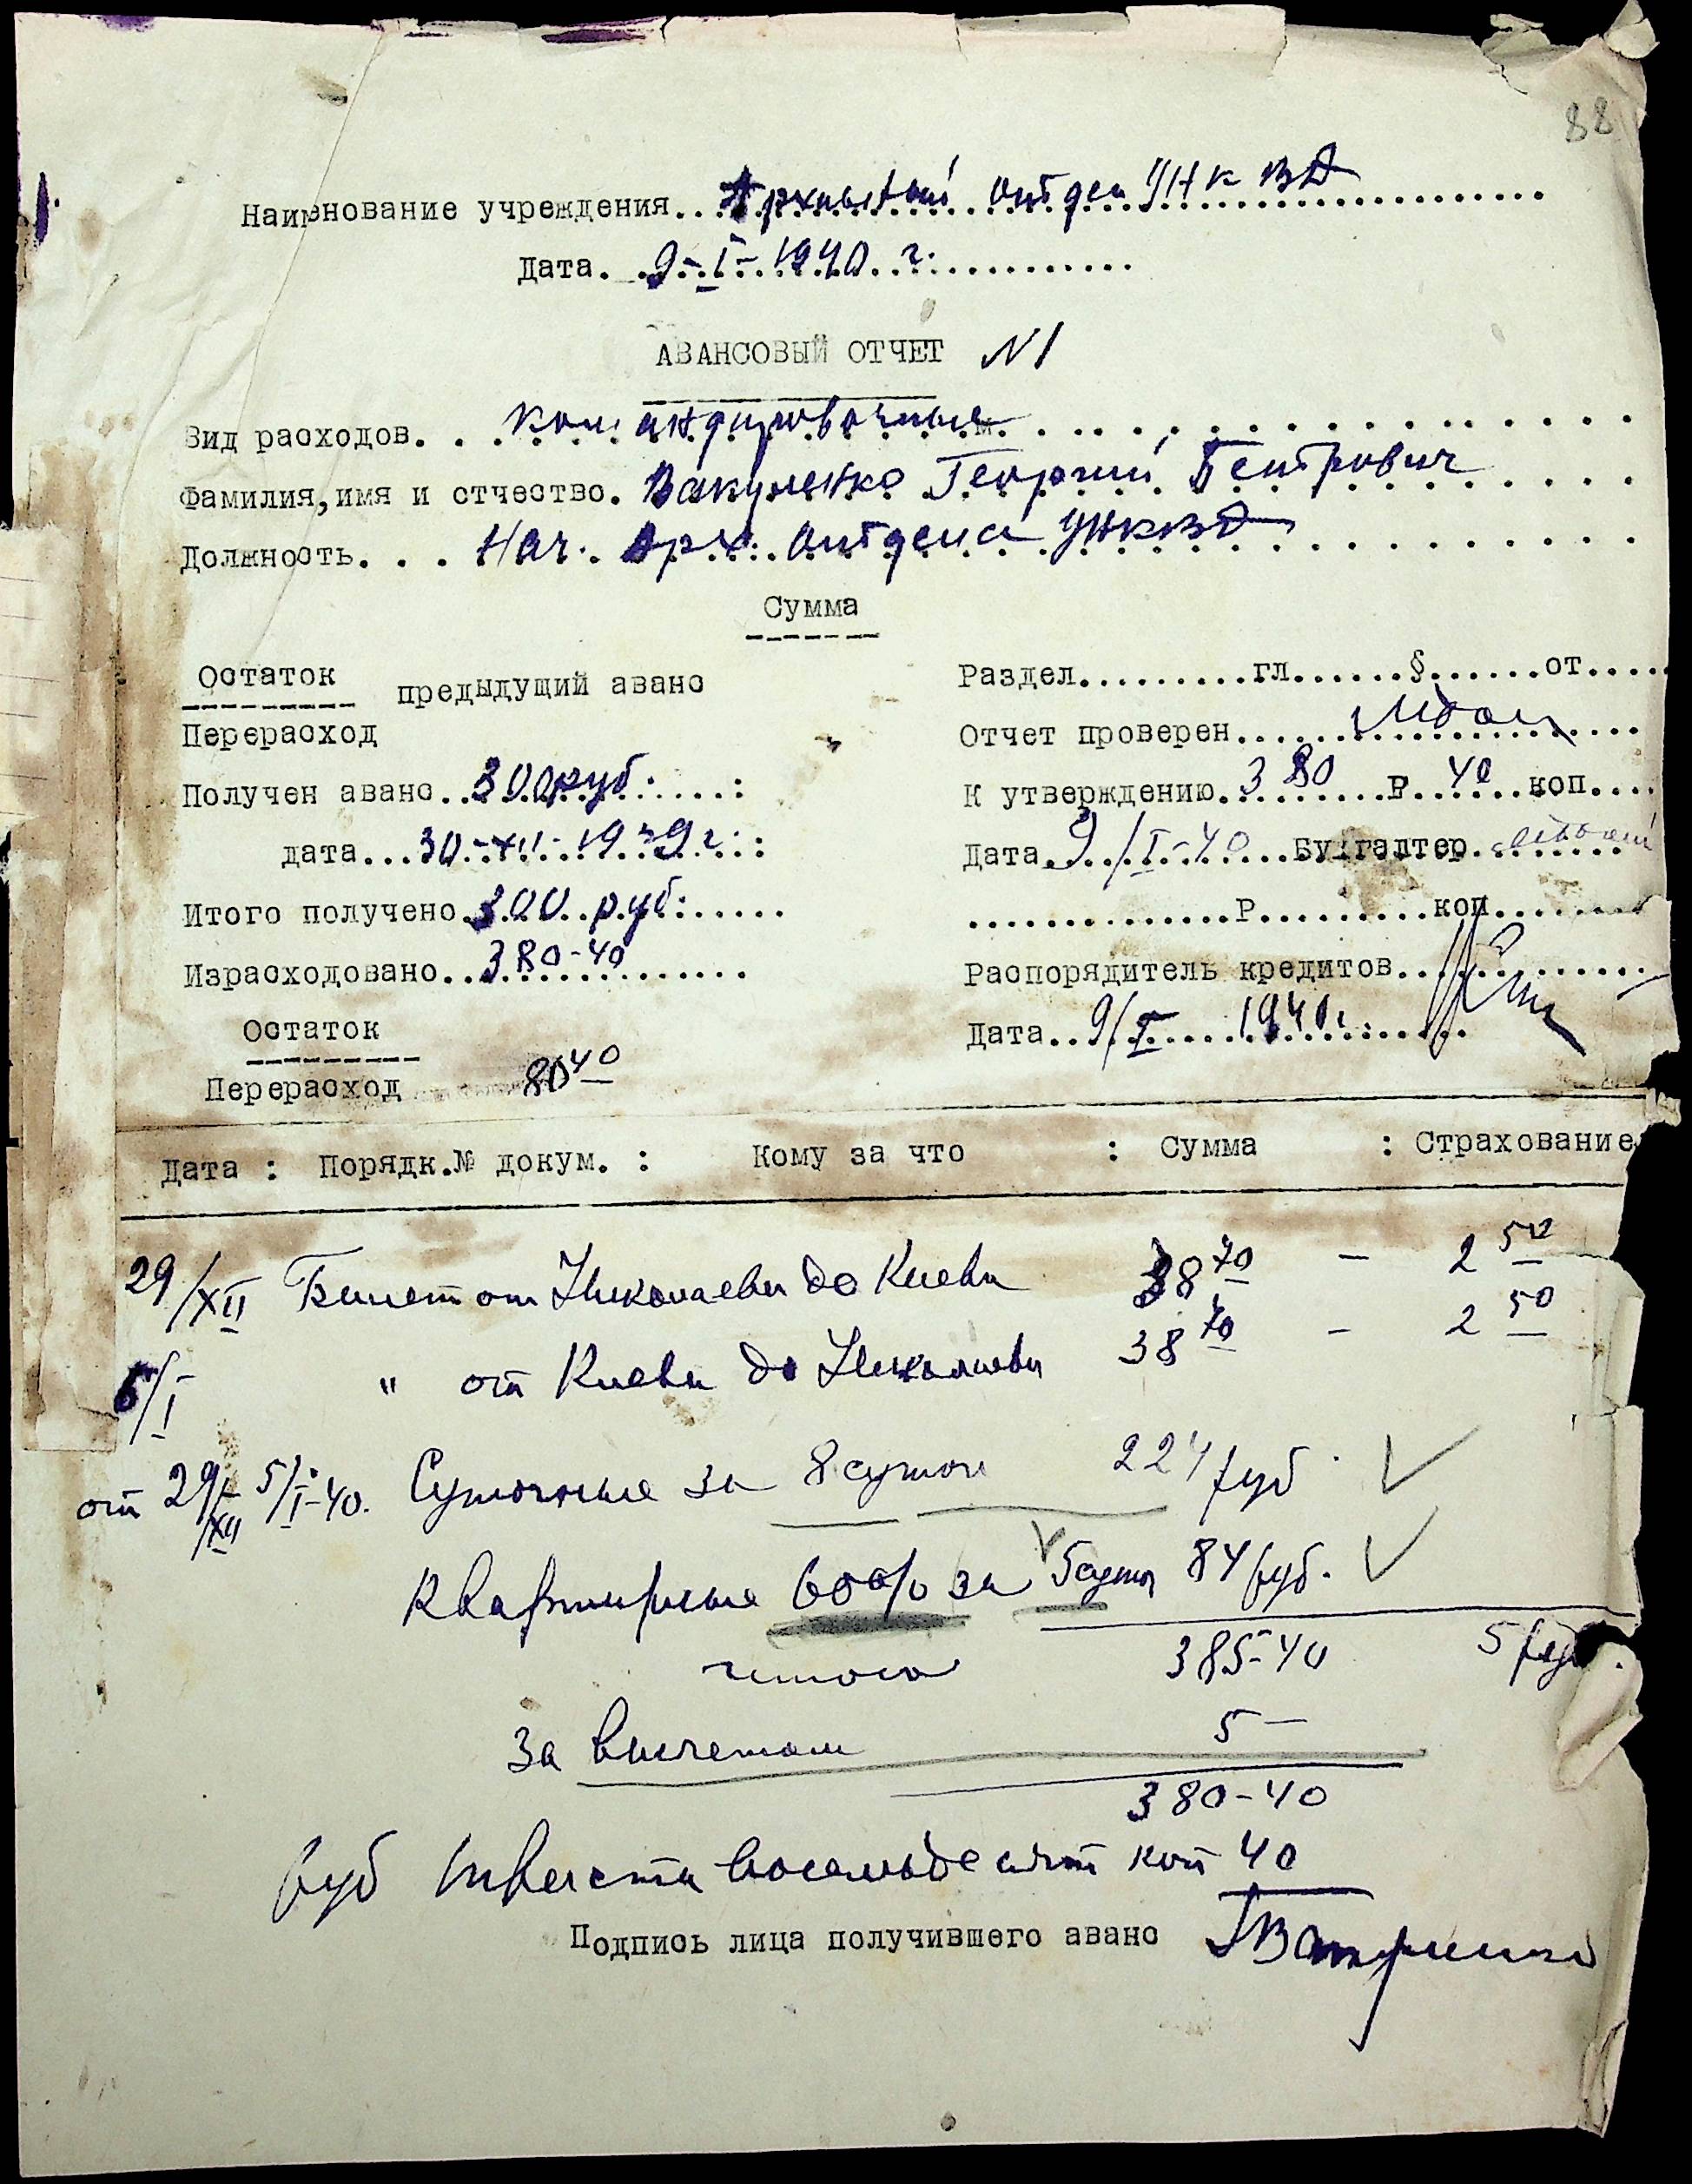 88
Наименование учреждения... Архивный отдел УНКВД
Дата. 9-I-1940 г.
АВАНСОВЫЙ ОТЧЕТ N1
Вид расходов... командировочные
Фамилия, имя и отчество. Вакуленко Георгий Петрович
Должность... Нач. Арх. отдела УНКВД
Сумма
Остаток предыдущий аванс
Перерасход
Получен аванс... 300 руб.
дата... 30-XII-1939 г.
Итого получено. 300 руб.
Израсходовано.. 380-40
Остаток
Перерасход 80 40
Раздел..........гл......§......от.....
Отчет проверен
К утверждению. 380 Р 40 коп....
Дата 9/I-40 Бухгалтер
..............Р.........коп........
Распорядитель кредитов
Дата.. 9/I 1940 г.
Дата : Порядк.№ докум. : Кому за что : Сумма : Страхование
29/XII Билет от Николаева до Киева 38 70 – 2 50
5/I " от Киева до Николаева 38 70 – 2 50
от 29/XII - 5/I-40. Суточные за 8 суток 224 руб.
Квартирные 60% за 5 суток 84 руб.
итого 385-40 5 руб.
за вычетом 5 –
380-40
руб триста восемьдесят коп 40
Подпись лица получившего аванс